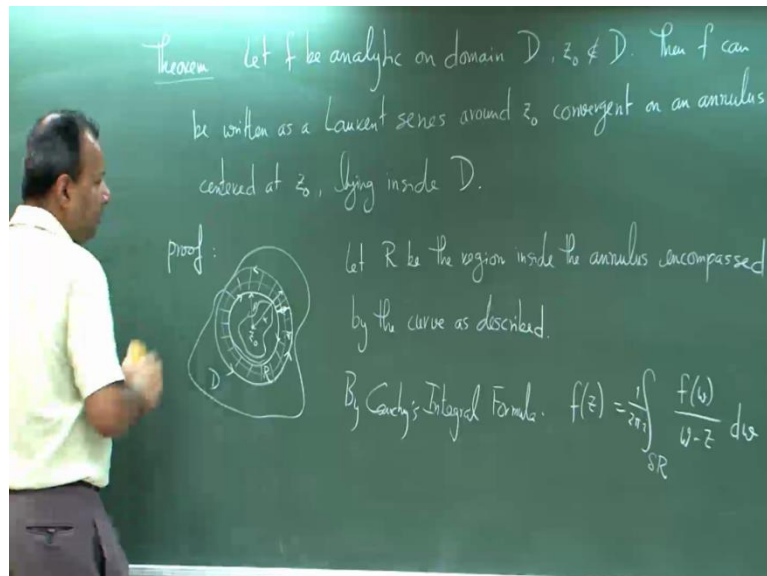 Theorem Let f be analytic on domain D, z₀ ∉ D. Then f can
be written as a Laurent series around z₀ convergent on an annulus
centered at z₀, lying inside D.
proof:
Let R be the region inside the annulus encompassed
by the curve as described.
D R z₀
By Cauchy's Integral Formula. f(z) = 1/2πi ∫_δR f(w)/(w-z) dw